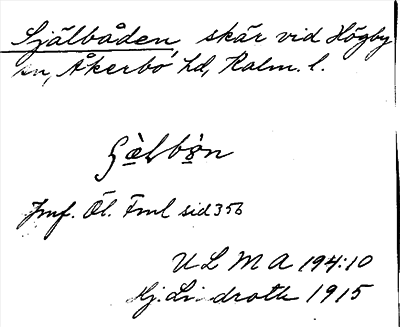 Själbåden, skär vid Högby
sn, Åkerbo hd, Kalm. l.
Jmf. Öl. Fml sid 356
ULMA 194:10
Hj. Lindroth 1915